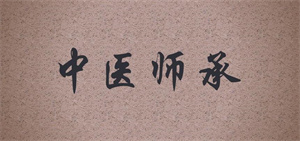 中医师承